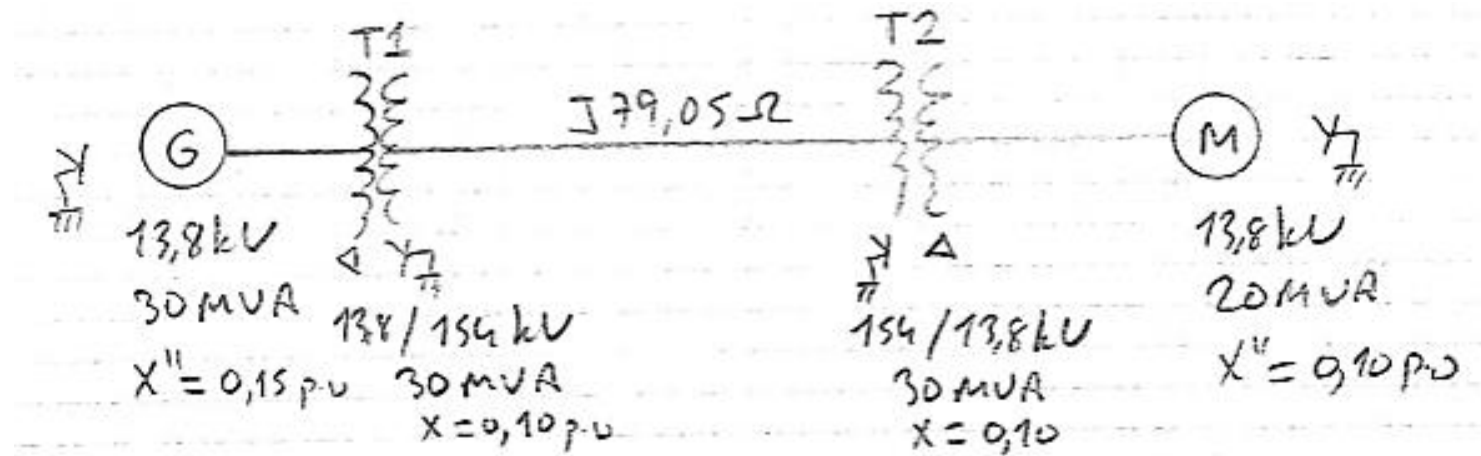 T1
T2
J79,05Ω
G
M
13,8kV
30MVA
X"=0,15p.u
Δ
13,8/154kV
30MVA
X=0,10p.u
Δ
154/13,8kV
30MVA
X=0,10
13,8kV
20MVA
X"=0,10p.u